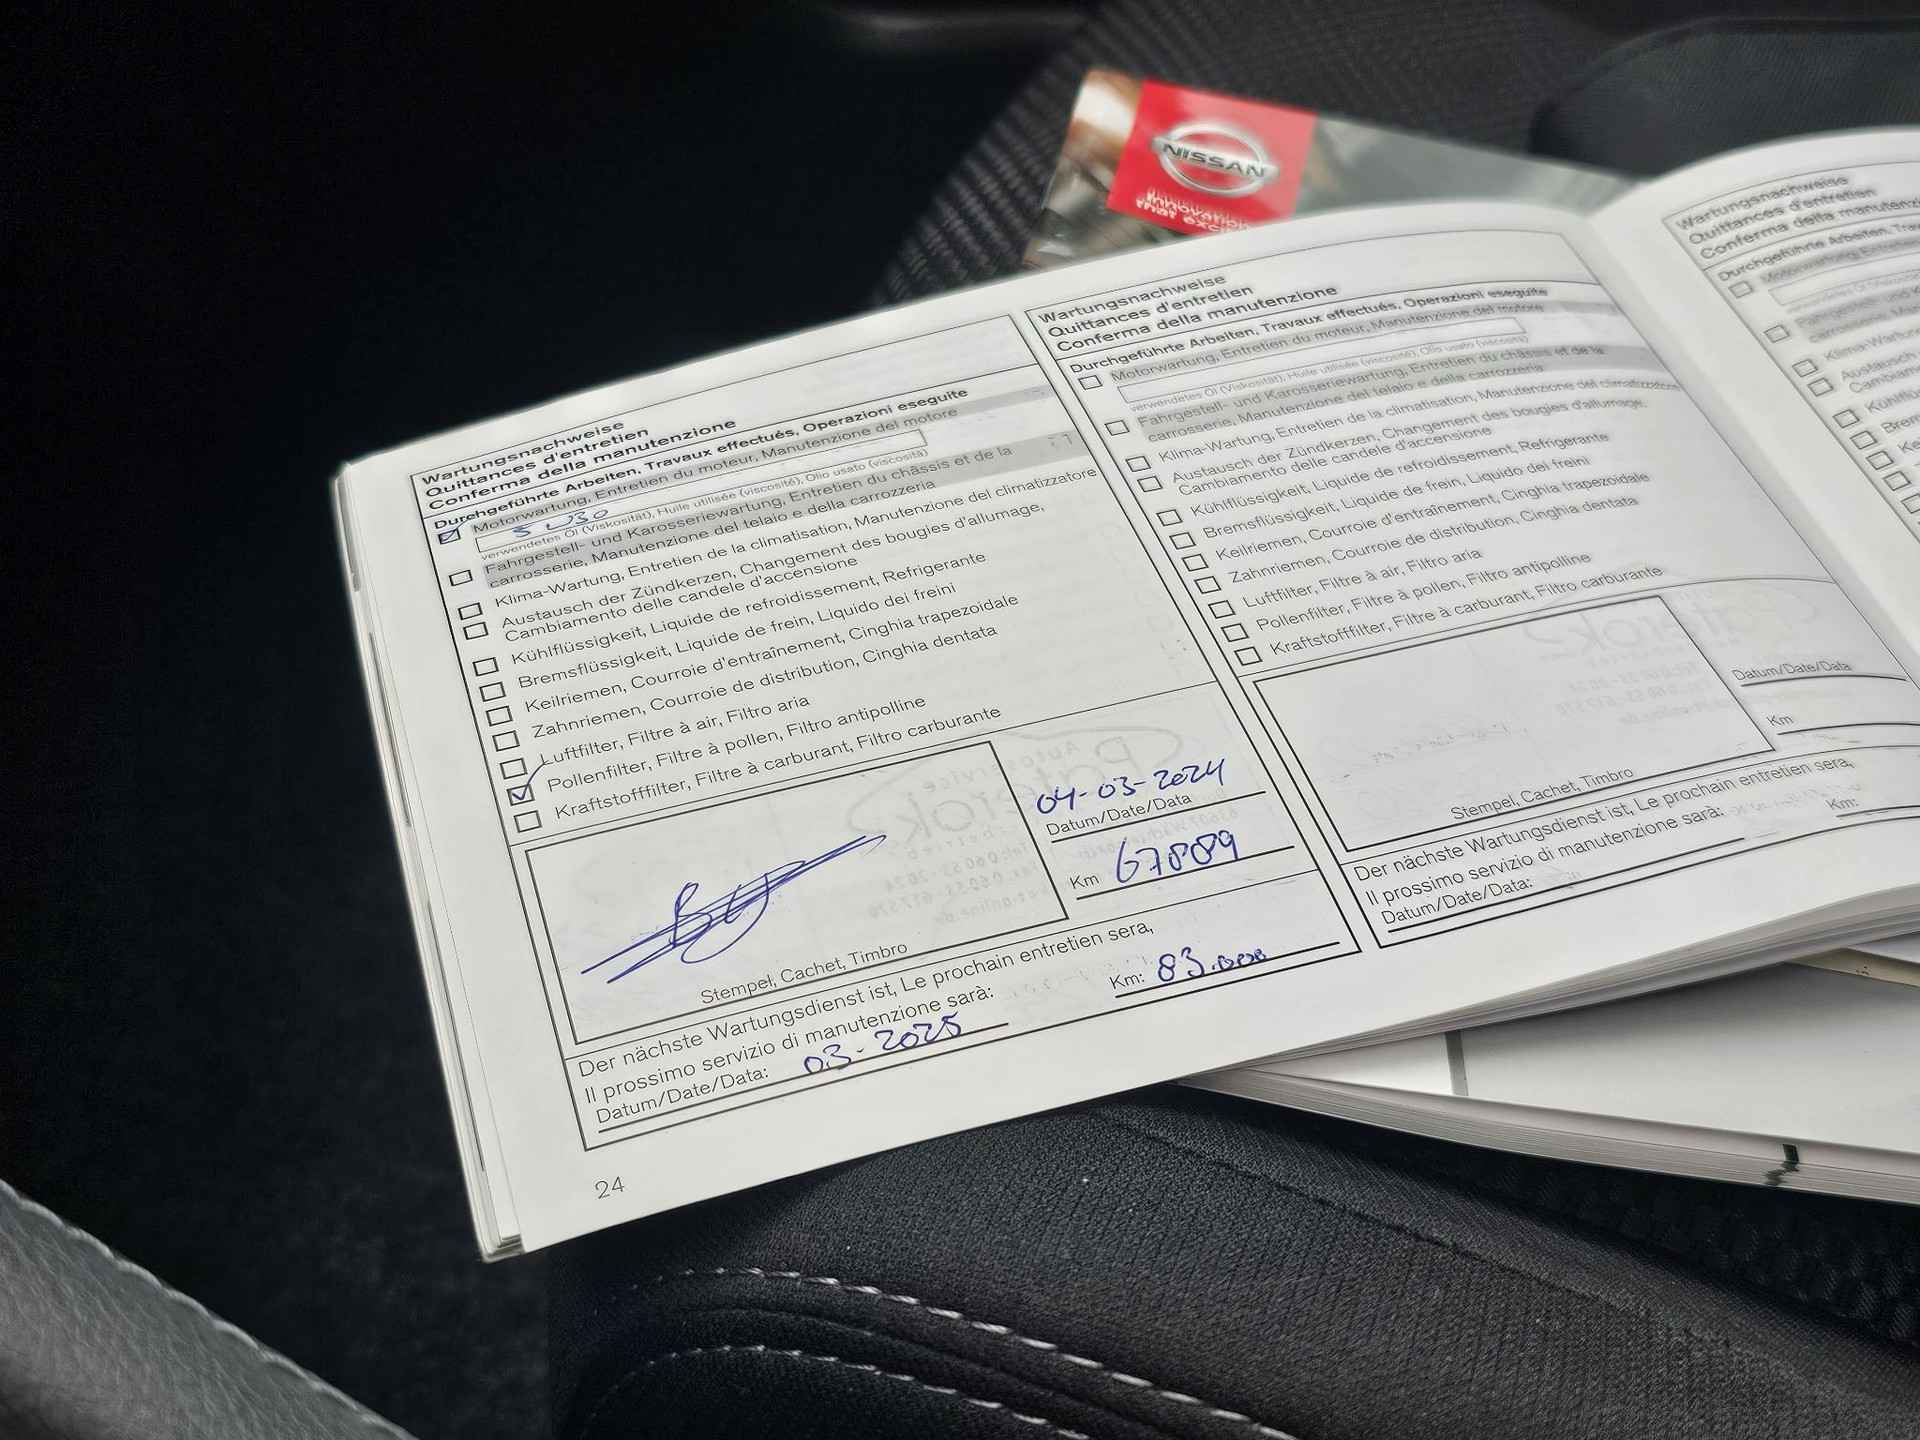 NISSAN
Innovation
that excit
Wartungsnachweise
Quittances d'entretien
Conferma della manutenzione
Durchgeführte Arbeiten, Travaux effectués, Operazioni eseguite
Motorwartung, Entretien du moteur, Manutenzione del motore
5W30
verwendetes Öl (Viskosität), Huile utilisée (viscosité), Olio usato (viscosità)
Fahrgestell- und Karosseriewartung, Entretien du châssis et de la
carrosserie, Manutenzione del telaio e della carrozzeria
Klima-Wartung, Entretien de la climatisation, Manutenzione del climatizzatore
Austausch der Zündkerzen, Changement des bougies d'allumage,
Cambiamento delle candele d'accensione
Kühlflüssigkeit, Liquide de refroidissement, Refrigerante
Bremsflüssigkeit, Liquide de frein, Liquido dei freini
Keilriemen, Courroie d'entraînement, Cinghia trapezoidale
Zahnriemen, Courroie de distribution, Cinghia dentata
Luftfilter, Filtre à air, Filtro aria
Pollenfilter, Filtre à pollen, Filtro antipolline
Kraftstofffilter, Filtre à carburant, Filtro carburante
04-03-2024
Datum/Date/Data
Km 67889
Stempel, Cachet, Timbro
Der nächste Wartungsdienst ist, Le prochain entretien sera,
Il prossimo servizio di manutenzione sarà:
Datum/Date/Data: 03-2025
Km: 83.000
24
Wartungsnachweise
Quittances d'entretien
Conferma della manutenzione
Durchgeführte Arbeiten, Travaux effectués, Operazioni eseguite
Motorwartung, Entretien du moteur, Manutenzione del motore
verwendetes Öl (Viskosität), Huile utilisée (viscosité), Olio usato (viscosità)
Fahrgestell- und Karosseriewartung, Entretien du châssis et de la
carrosserie, Manutenzione del telaio e della carrozzeria
Klima-Wartung, Entretien de la climatisation, Manutenzione del climatizzatore
Austausch der Zündkerzen, Changement des bougies d'allumage,
Cambiamento delle candele d'accensione
Kühlflüssigkeit, Liquide de refroidissement, Refrigerante
Bremsflüssigkeit, Liquide de frein, Liquido dei freini
Keilriemen, Courroie d'entraînement, Cinghia trapezoidale
Zahnriemen, Courroie de distribution, Cinghia dentata
Luftfilter, Filtre à air, Filtro aria
Pollenfilter, Filtre à pollen, Filtro antipolline
Kraftstofffilter, Filtre à carburant, Filtro carburante
Datum/Date/Data
Km
Stempel, Cachet, Timbro
Der nächste Wartungsdienst ist, Le prochain entretien sera,
Il prossimo servizio di manutenzione sarà:
Datum/Date/Data:
Km:
Wartungsnachweise
Quittances d'entretien
Conferma della manutenzion
Durchgeführte Arbeiten, Trav
Motorwartung, Entretien
Klima-Wartun
Austausch
Cambiame
Kühlflüs
Brem